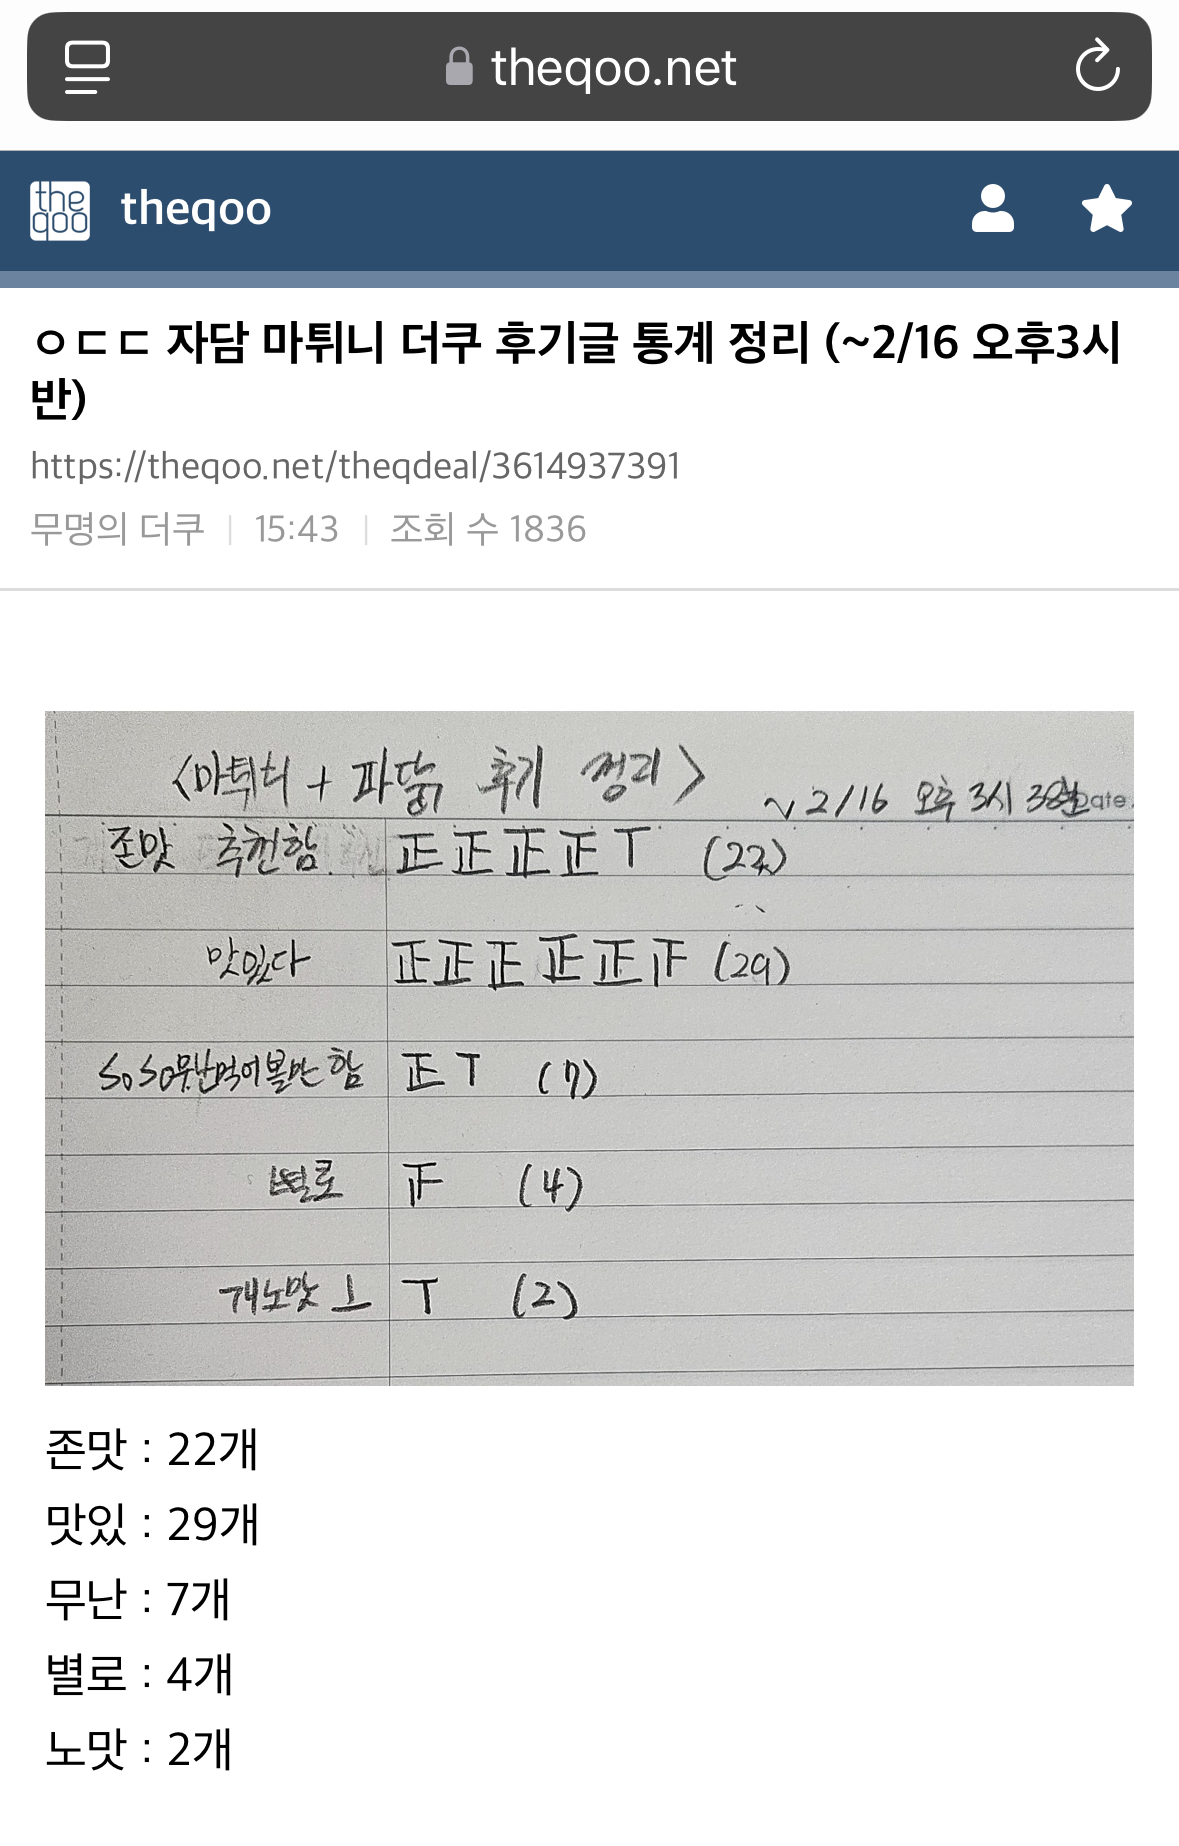 theqoo.net
the
qoo
theqoo
ㅇㄷㄷ 자담 마튀니 더쿠 후기글 통계 정리 (~2/16 오후3시
반)
https://theqoo.net/theqdeal/3614937391
무명의 더쿠 | 15:43 | 조회 수 1836
<마튀니 + 파닭 후기 정리>
~2/16 오후 3시 30분
Date.
존맛 추천함 正正正正T (22)
맛있다 正正正正正正 (29)
SoSo무난먹어볼만함 正T (7)
별로 正 (4)
개노맛 T (2)
존맛 : 22개
맛있 : 29개
무난 : 7개
별로 : 4개
노맛 : 2개